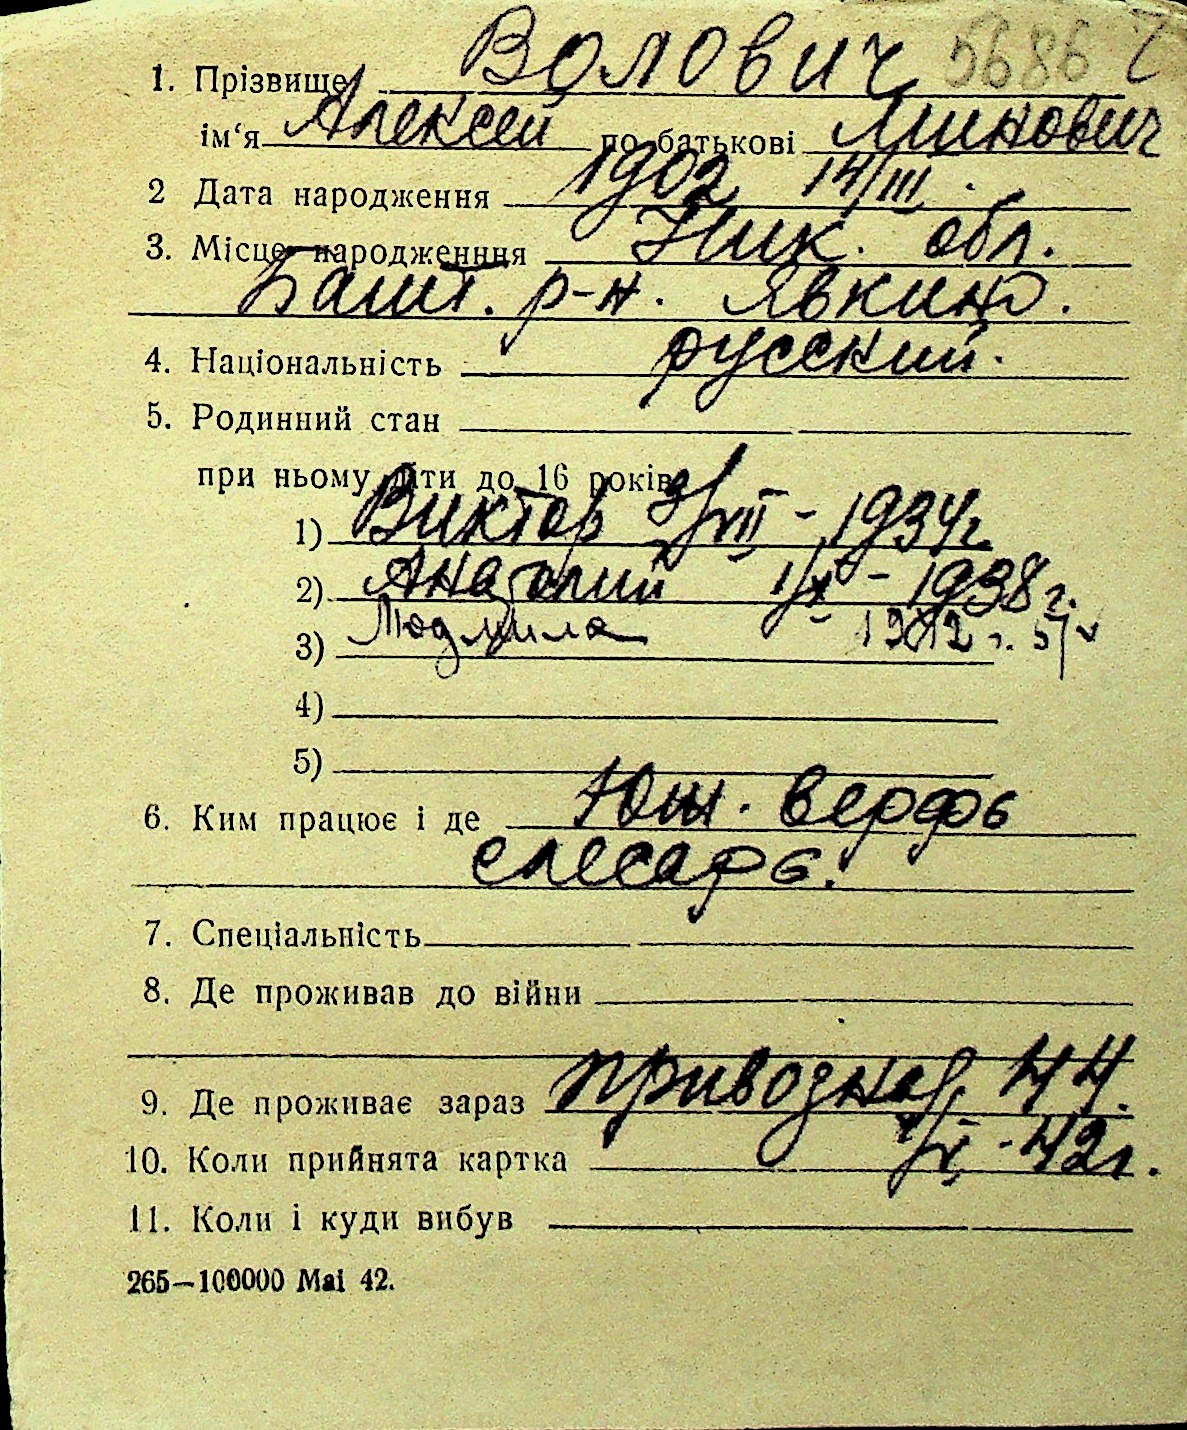 1. Прізвище Волович 5686
ім‘я Алексей по батькові Минович
2 Дата народження 1902 14/III.
3. Місце народженння Ник. обл.
Башт. р-н. Явкино.
4. Національність русский.
5. Родинний стан
при ньому діти до 16 років
1) Виктор 3/VII – 1934г.
2) Анатолий 1/X – 1938г.
3) Людмила 1942 г. 5/V
4)
5)
6. Ким працює і де Юж. верфь
слесарь.
7. Спеціальність
8. Де проживав до війни
9. Де проживає зараз Приводная, 44.
10. Коли прийнята картка 42г.
11. Коли і куди вибув
265—100000 Mai 42.